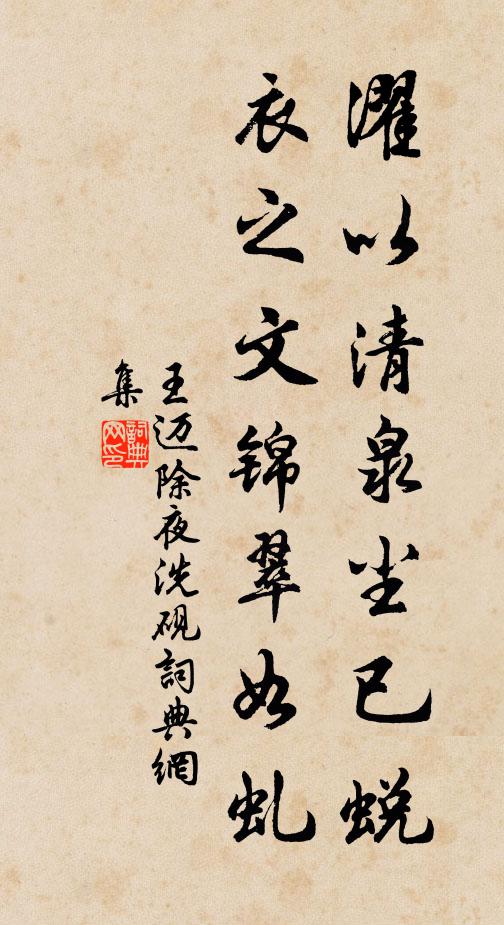 濯以清泉尘已蜕
衣之文锦翠如虬
王迈除夜洗砚詞典網
集
詞典网印